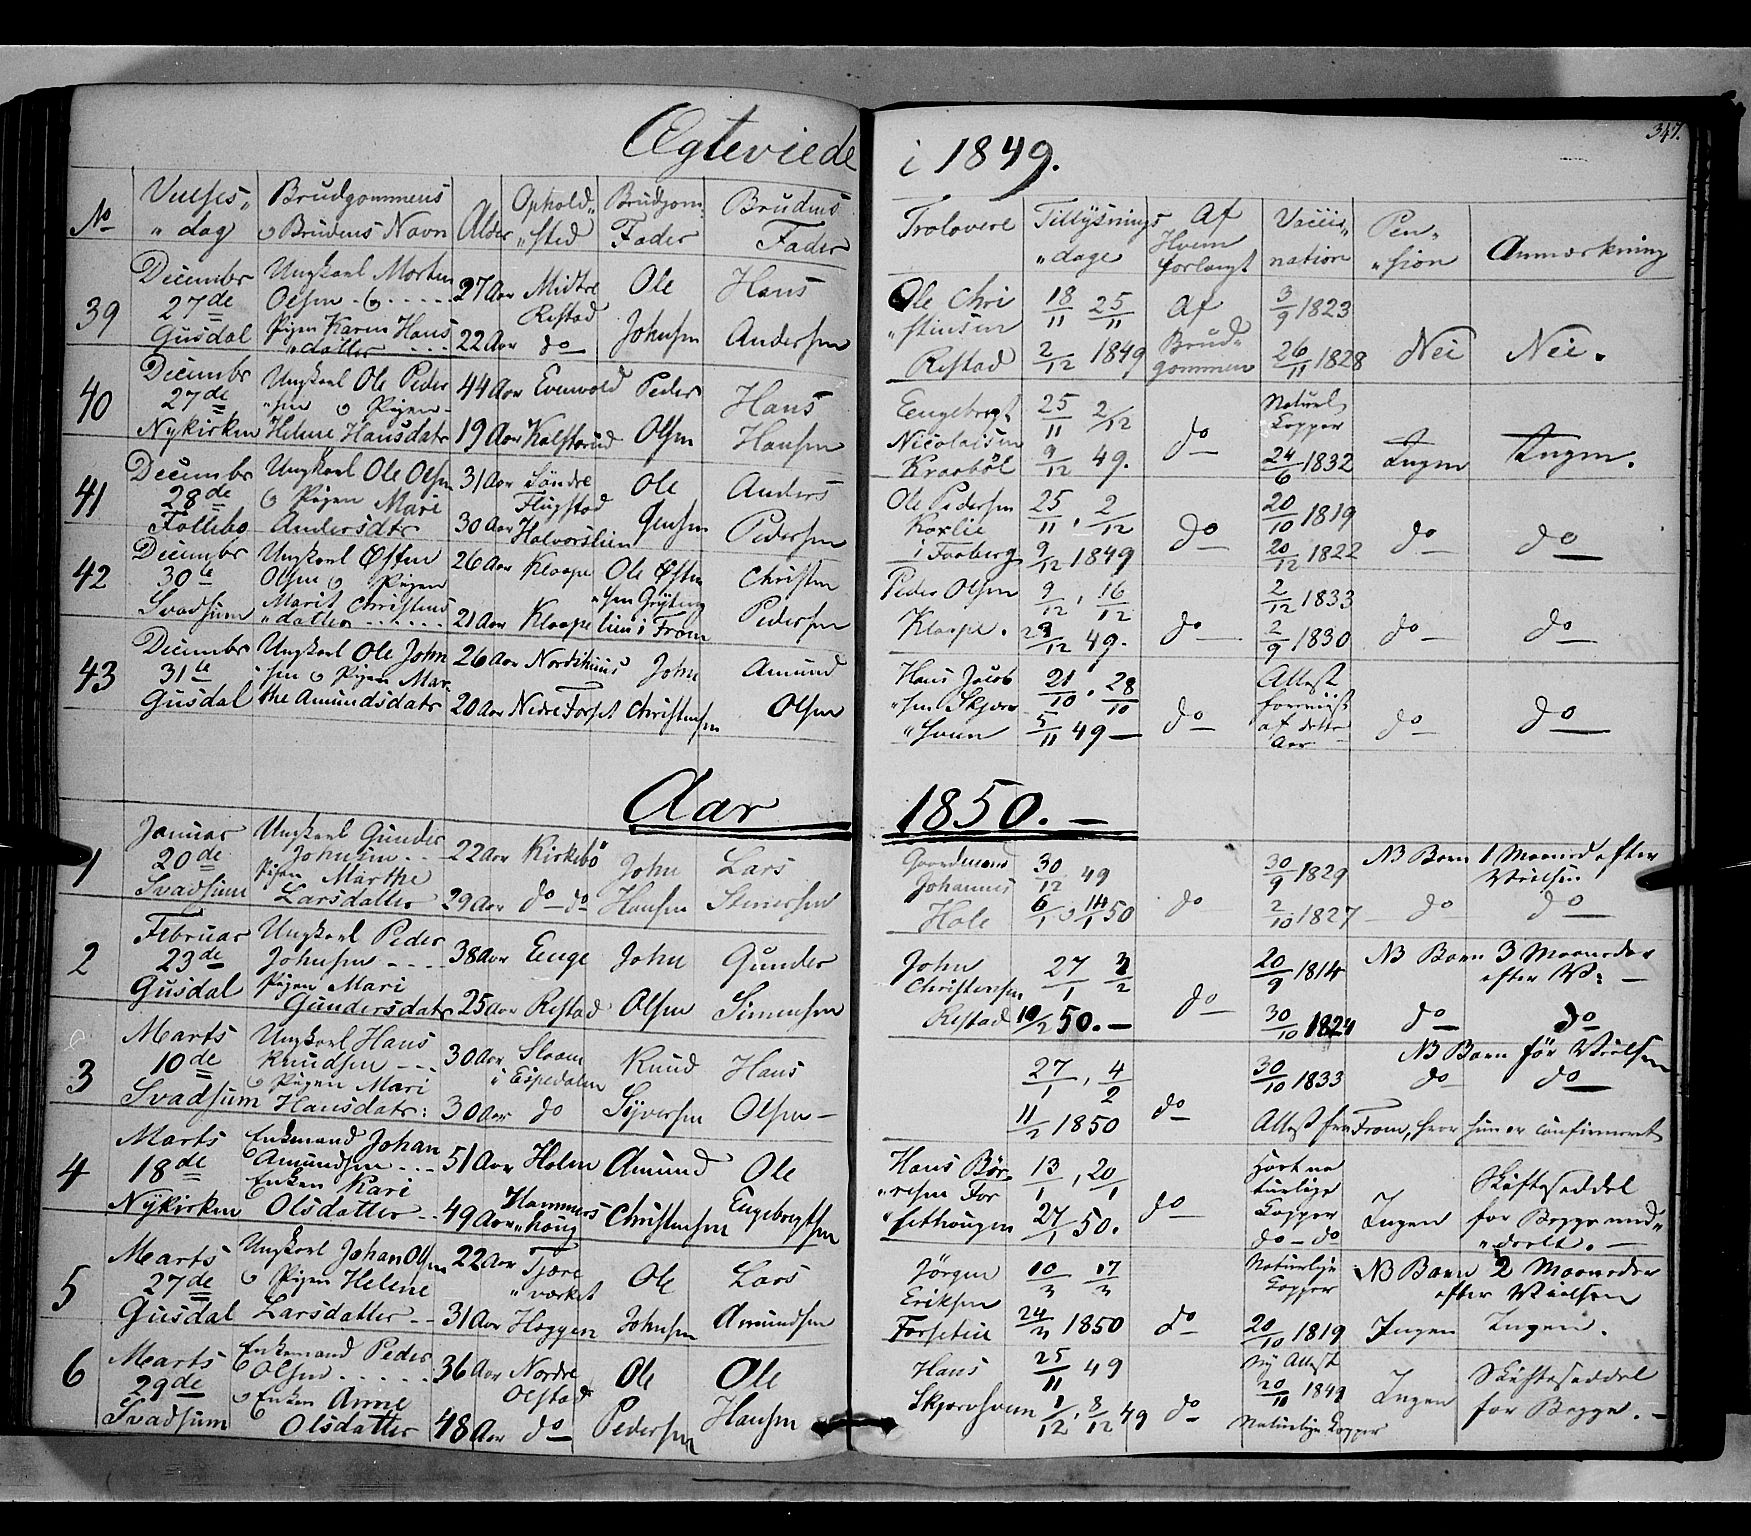 Ægteviede i 1849.
347.
No
Vielses„
„dag
Brudgommens
& Brudens Navn
Alder
Ophold„
„sted
Brudgom:
Fader
Brudens
Fader
Troloverе
Tillysnings
„dage
Af
Hvem
forlangt
Vacci„
nation
Pen„
„sion
Anmærkning
39
December
27de
Gusdal
Ungkarl Morten
Olsen & - - - -
Pigen Karen Hans
„datter - - -
27 Aar
22 Aar
Midtre
Restad
do
Ole
Johnsen
Hans
Andersen
Ole Chri
„stiansen
Restad
18/11 25/11
2/12 1849
Af
Brud„
gommen
3/9 1823
26/11 1828
Nei
Nei.
40
Decembr
27de
Nykirken
Ungkarl Ole Peder
„sen & Pigen
Helene Hansdatr
44 Aar
19 Aar
Evenvold
Kalstarud
Peder
Olsen
Hans
Hansen
Engebregt
Nicolaisen
Kraaböl
25/11 2/12
9/12 49.
do
Naturl
Kopper
24/6 1832
Ingen
Ingen.
41
Decembr
28de
Follebo
Ungkarl Ole Olsen
& Pigen Mari
Andersdtr
31 Aar
30 Aar
Söndre
Flugstad
Halvorslien
Ole
Jensen
Anders
Pedersen
Ole Pedersen
Korlie
i Faaberg
25/11, 2/12
9/12 1849
do
20/10 1819
20/12 1822
do
do
42
December
30te
Svadsum
Ungkarl Østen
Olsen & Pigen
Marit Christens
„datter - - - -
26 Aar
21 Aar
Klaape
Klaape
Ole Østen
„sen Gryting
lien i From
Christen
Pedersen
Peder Olsen
Klaape.
9/12, 16/12
23/12 49.
do
2/12 1833
2/9 1830
do
do
43
December
31te
Gusdal
Ungkarl Ole John
„sen & Pigen Mar-
the Amundsdatr
26 Aar
20 Aar
Nordihuus
Nedre Forset
John
Christensen
Amund
Olsen
Hans Jacob
„sen Skjær
„svum
21/10, 28/10
5/11 49 —
do
Attest
foreviist
af dette
Aar
do
do
Aar 1850. —
1
Januar
20de
Svadsum
Ungkarl Gunder
Johnsen - -
Pigen Marthe
Larsdatter
22 Aar
29 Aar
Kirkebö
do do
John
Hansen
Lars
Steinersen
Gaardmand
Johannes
Hole
30/12 49
6/1 & 14/1 50
do
30/9 1829
2/10 1827
NB Barn 1 Maaned efter
Vielsen
do
do
2
Februar
23de
Gusdal
Ungkarl Peder
Johnsen - - -
Pigen Mari
Gundersdatr
38 Aar
25 Aar
Enge
Restad
John
Olsen
Gunder
Simensen
John
Christensen
Restad
27/1 3/2
10/2 50. —
do
20/9 1814
30/10 1824
NB Barn 3 Maaneder
efter V: —
do
do
3
Marts
10de
Svadsum
Ungkarl Hans
Knudsen - - -
& Pigen Mari
Hansdatr:
30 Aar
30 Aar
Slaaen
i Espedalen
do
Knud
Syversen
Hans
Olsen —
27/1, 4/2
11/2 1850
do
30/10 1833
NB Barn för Vielsen
do
do
Attest fra From, hvor hun er confirmeret
4
Marts
18de
Nykirken
Enkemand Johan
Amundsen - - -
& Enken Kari
Olsdatter - -
51 Aar
49 Aar
Holen
Hammers
„houg
Amund
Christensen
Ole
Engebregtsen
Hans Bör„
„resen For
„sethougen
13/1, 20/1
27/1 50.
do
Havt na
turlige
Kopper
do — do
Ingen
Skifteseddel
for Begge med„
„deelt. —
5
Marts
27de
Gusdal
Ungkarl Johan Olsen
& Pigen Helene
Larsdatter - -
22 Aar
31 Aar
Tjære
„værket
Haggen
Ole
Johnsen
Lars
Amundsen
Jörgen
Eriksen
Forsetlie
10/3 17/3
24/3 1850
do
Naturlige
Kopper
20/10 1819
NB Barn 2 Maaneder
efter Vielsen
Ingen
Ingen.
6
Marts
29de
Svadsum
Enkemand Peder
Olsen - - - - -
& Enken Anne
Olsdatter
36 Aar
48 Aar
Nordre
Olstad
do
Ole
Pedersen
Ole
Hansen
Hans
Skjærvsvum
25/11 49
1/12, 8/12 49
do
Ny Attest
20/11 1849
Naturlige Kopper
Ingen
Skifteseddel
for Begge. —